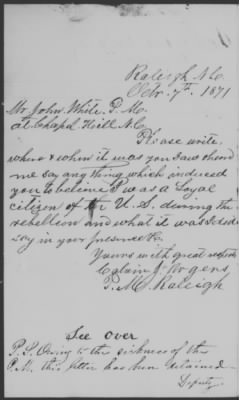 Raleigh N.C.
Octr. 7th. 1871
Mr John White P. M.
at Chapel Hill N.C.
Please write
where & when it was you saw & heard
me say any thing which induced
you to believe I was a Loyal
citizen of the U. S. during the
rebellion and what it was I did
say in your presence &c.
Yours with great respect
P. M. Raleigh
See over
P. S. Owing to the sickness of the
P.M. this letter has been retained
Deputy